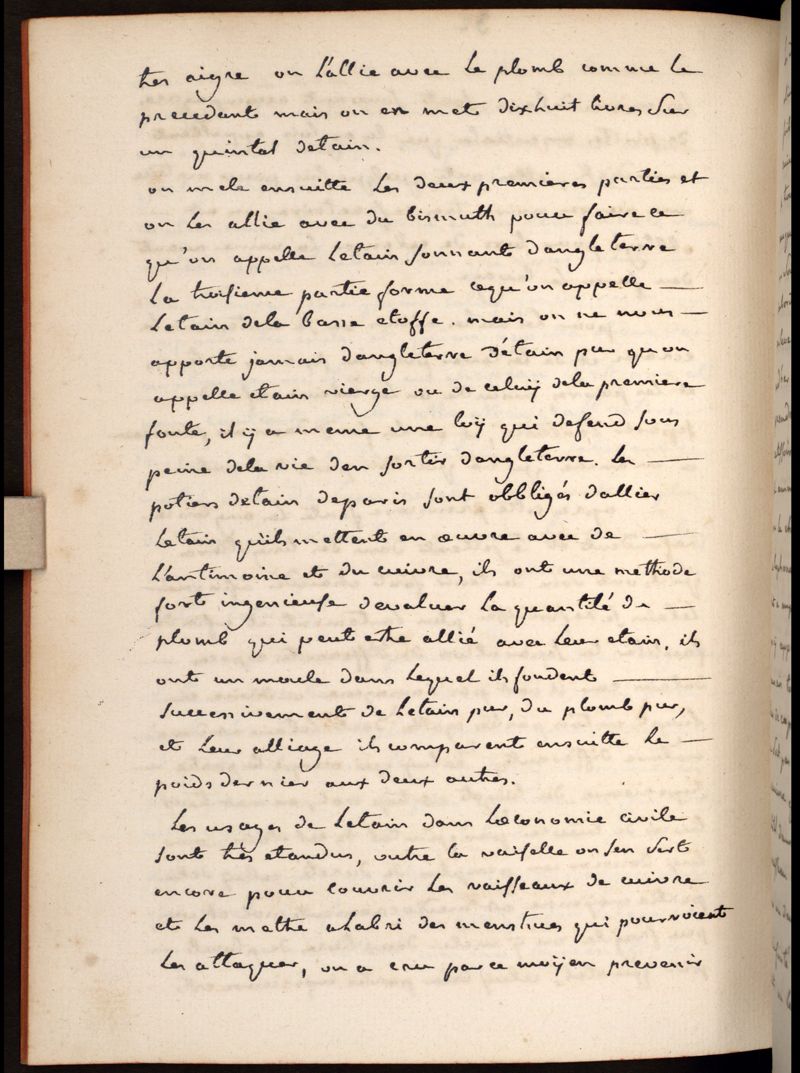 tres aigre on l'allie avec le plomb comme le
precedant mais on en met dixhuit livres sur
un quintal detain.
on mele ensuitte les deux premieres parties et
on les allie avec du bismuth pour faire ce
qu'on appelle letain sonnant d'angleterre
la troisieme partie forme cequ'on appelle —
letain dela basse etoffe. mais on ne nous —
apporte jamais d'angleterre d'étain pur qu'on
appelle etain vierge ou de celuij dela premiere
fonte, il ij a meme une loij qui defend sous
peine dela vie den sortir dangleterre. les —
potiers detain deparis sont obbligés dallier
letain qu'ils mettent en œuvre avec de —
l'antimoine et du cuivre, ils ont une methode
fort ingenieuse devaluer la quantité de —
plomb qui peut estre allié avec leur etain, ils
ont un moule dans lequel ils fondent —
successivement de letain pur, du plomb pur,
et leur alliage ils comparent ensuitte le —
poids dernier aux deux autres.
les usages de letain dans lœconomie civile
sont tres etandus, outre la vaiselle on sen sert
encore pour couvrir les vaisseaux de cuivre
et les mettre alabri des menstrues qui pourroient
les attaquer, on a cru par ce moijen prevenir